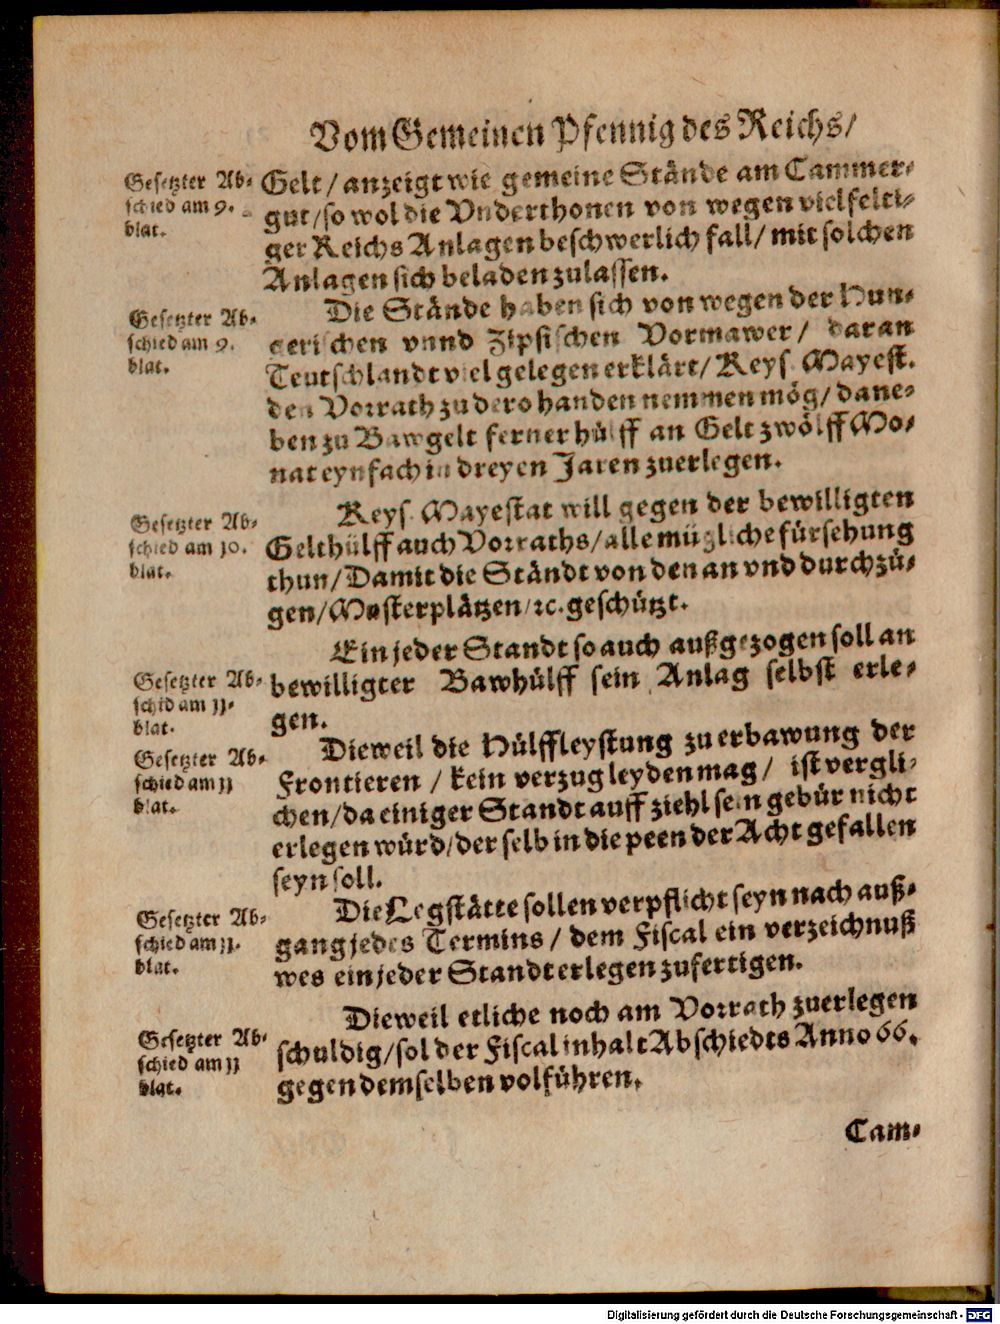 Vom Gemeinen Pfennig des Reichs/
Gesetzter Ab-
schied am 9.
blat.
Gelt / anzeigt wie gemeine Stände am Cammer-
gut / so wol die Vnderthonen von wegen vielfelti-
ger Reichs Anlagen beschwerlich fall / mit solchen
Anlagen sich beladen zulassen.
Gesetzter Ab-
schied am 9.
blat.
Die Stände haben sich von wegen der Hun-
gerischen vnnd Zipsischen Vormawer / daran
Teutschlandt viel gelegen erklärt / Keys. Mayest.
den Vorrath zu dero handen nemmen mög / dane-
ben zu Bawgelt ferner hülff an Gelt zwölff Mo-
nat eynfach in dreyen Jaren zuerlegen.
Gesetzter Ab-
schied am 10.
blat.
Keys. Mayestat will gegen der bewilligten
Gelthülff auch Vorraths / alle mügliche fürsehung
thun / Damit die Ständt von den an vnd durchzü-
gen / Mosterplätzen / ꝛc. geschützt.
Ein jeder Standt so auch außgezogen soll an
Gesetzter Ab-
schid am 11.
blat.
bewilligter Bawhülff sein Anlag selbst erle-
gen.
Gesetzter Ab-
schied am 11
blat.
Dieweil die Hülffleystung zu erbawung der
Frontieren / kein verzug leyden mag / ist vergli-
chen / da einiger Standt auff ziehl sein gebür nicht
erlegen würd / der selb in die peen der Acht gefallen
seyn soll.
Gesetzter Ab-
schied am 11.
blat.
Die Legstätte sollen verpflicht seyn nach auß-
gang jedes Termins / dem Fiscal ein verzeichnuß
wes ein jeder Standt erlegen zufertigen.
Gesetzter Ab-
schied am 11
blat.
Dieweil etliche noch am Vorrath zuerlegen
schuldig / sol der Fiscal inhalt Abschiedts Anno 66.
gegen demselben volführen.
Cam-
Digitalisierung gefördert durch die Deutsche Forschungsgemeinschaft - DFG